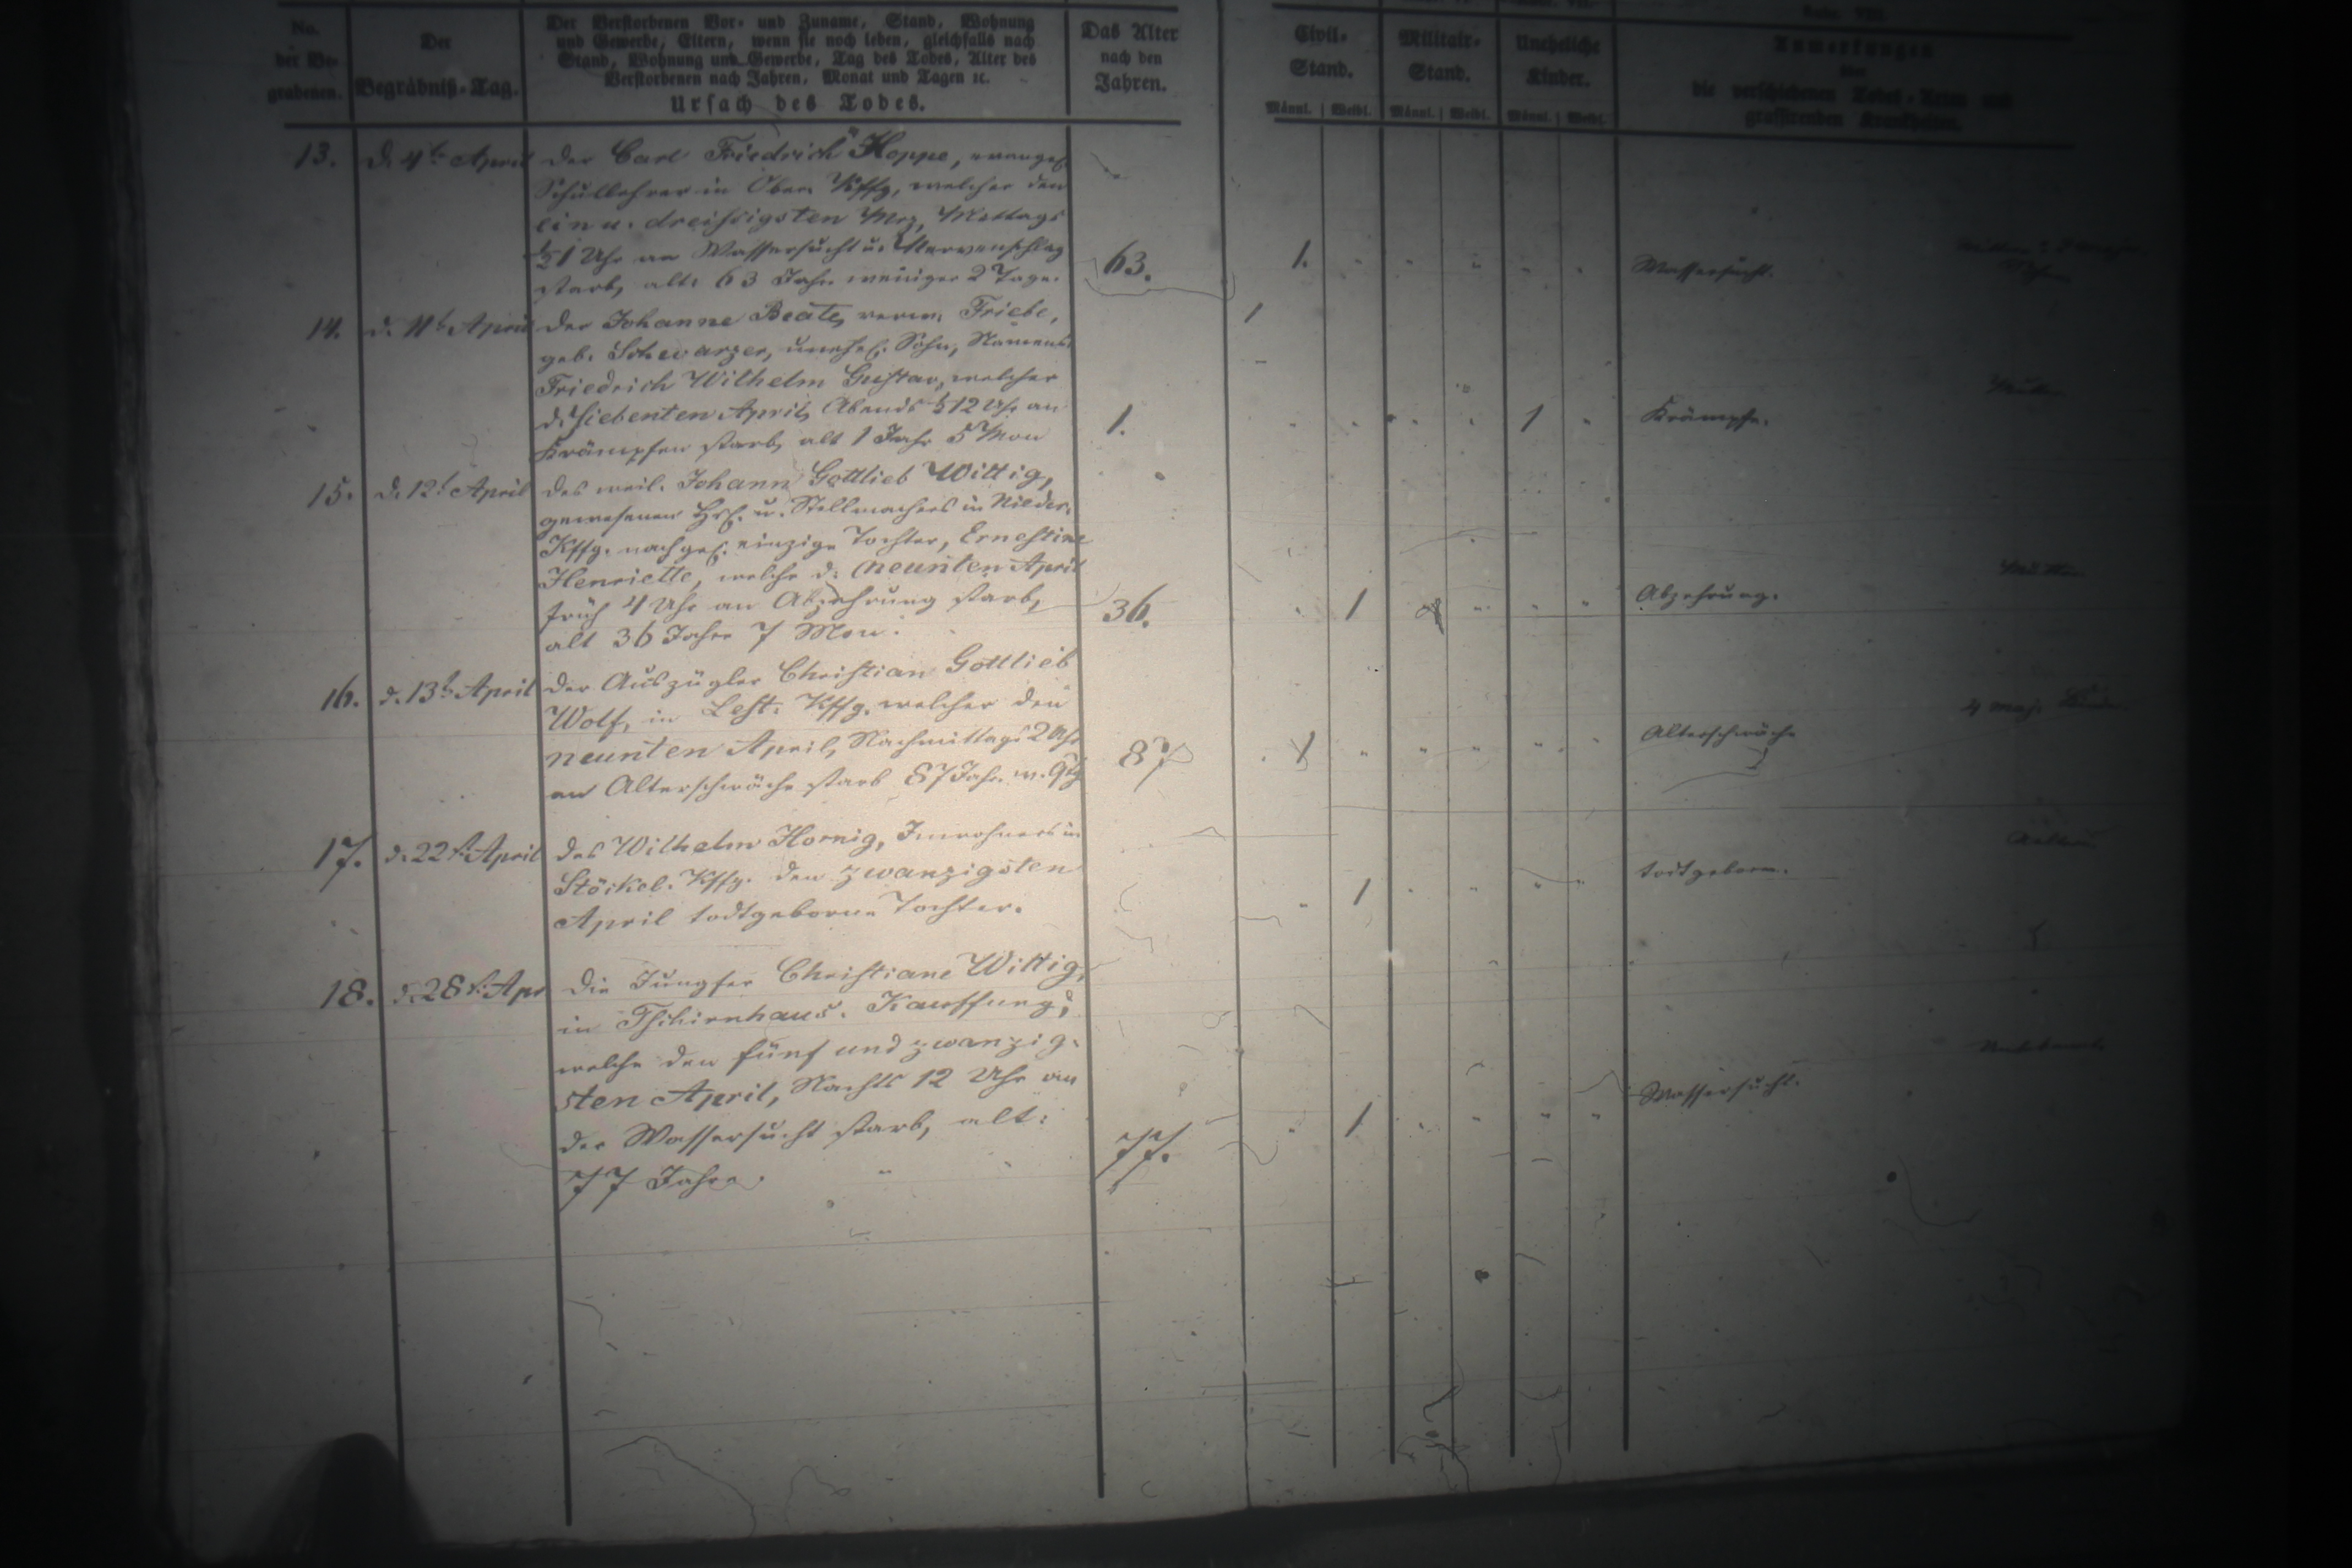 No.
der Be-
grabenen.
Der
Begräbniß-Tag.
Der Verstorbenen Vor- und Zuname, Stand, Wohnung
und Gewerbe, Eltern, wenn sie noch leben, gleichfalls nach
Stand, Wohnung und Gewerbe, Tag des Todes, Alter des
Verstorbenen nach Jahren, Monat und Tagen ꝛc.
Ursach des Todes.
Das Alter
nach den
Jahren.
Civil-
Stand.
Militair-
Stand.
Uneheliche
Kinder.
Anmerkungen
über
die verschiedenen Todes-Arten und
grassirenden Krankheiten.
Männl. Weibl. Männl. Weibl. Männl. Weibl.
13. d. 4t. April der Carl Friedrich Hoppe, evangel.
Schullehrer in Ober Kffg, welcher den
ein u. dreißigsten Mrz, Mittags
½1 Uhr an Wassersucht u. Nervenschlag
starb, alt: 63 Jahr weniger 2 Tage.
63. 1. Wassersucht.
14. d. 11t. April der Johanne Beate, verw. Friebe,
geb. Schwarzer, unehel. Sohn, Namens
Friedrich Wilhelm Gustav, welcher
d. siebenten April, Abends ½12 Uhr an
Krämpfen starb, alt 1 Jahr 5 Mon
1. 1 Krämpfe.
15. d. 12t. April des weil. Johann Gottlieb Wittig,
gewesenen Hsl. u. Stellmachers in Nieder.
Kffg. nachgel. einzige Tochter, Ernestine
Henriette, welche d. neunten April
früh 4 Uhr an Abzehrung starb,
alt 36 Jahre 7 Mon.
36. 1 Abzehrung.
16. d. 13t. April der Auszügler Christian Gottlieb
Wolf, in Lest. Kffg. welcher den
neunten April, Nachmittags 2 Uhr
an Alterschwäche starb 87 Jahr. w. 9 tg
87 1 Alterschwäche 4 maj.
17. d. 22st. April des Wilhelm Hornig, Inwohners in
Stöckel. Kffg. den zwanzigsten
April todtgeborne Tochter.
1 todtgeboren.
18. d. 28st. Apr die Jungfer Christiane Wittig,
in Tschirnhaus. Kauffung,
welche den fünf und zwanzig-
sten April, Nachts 12 Uhr an
der Wassersucht starb, alt:
77 Jahre.
77. 1 Wassersucht.